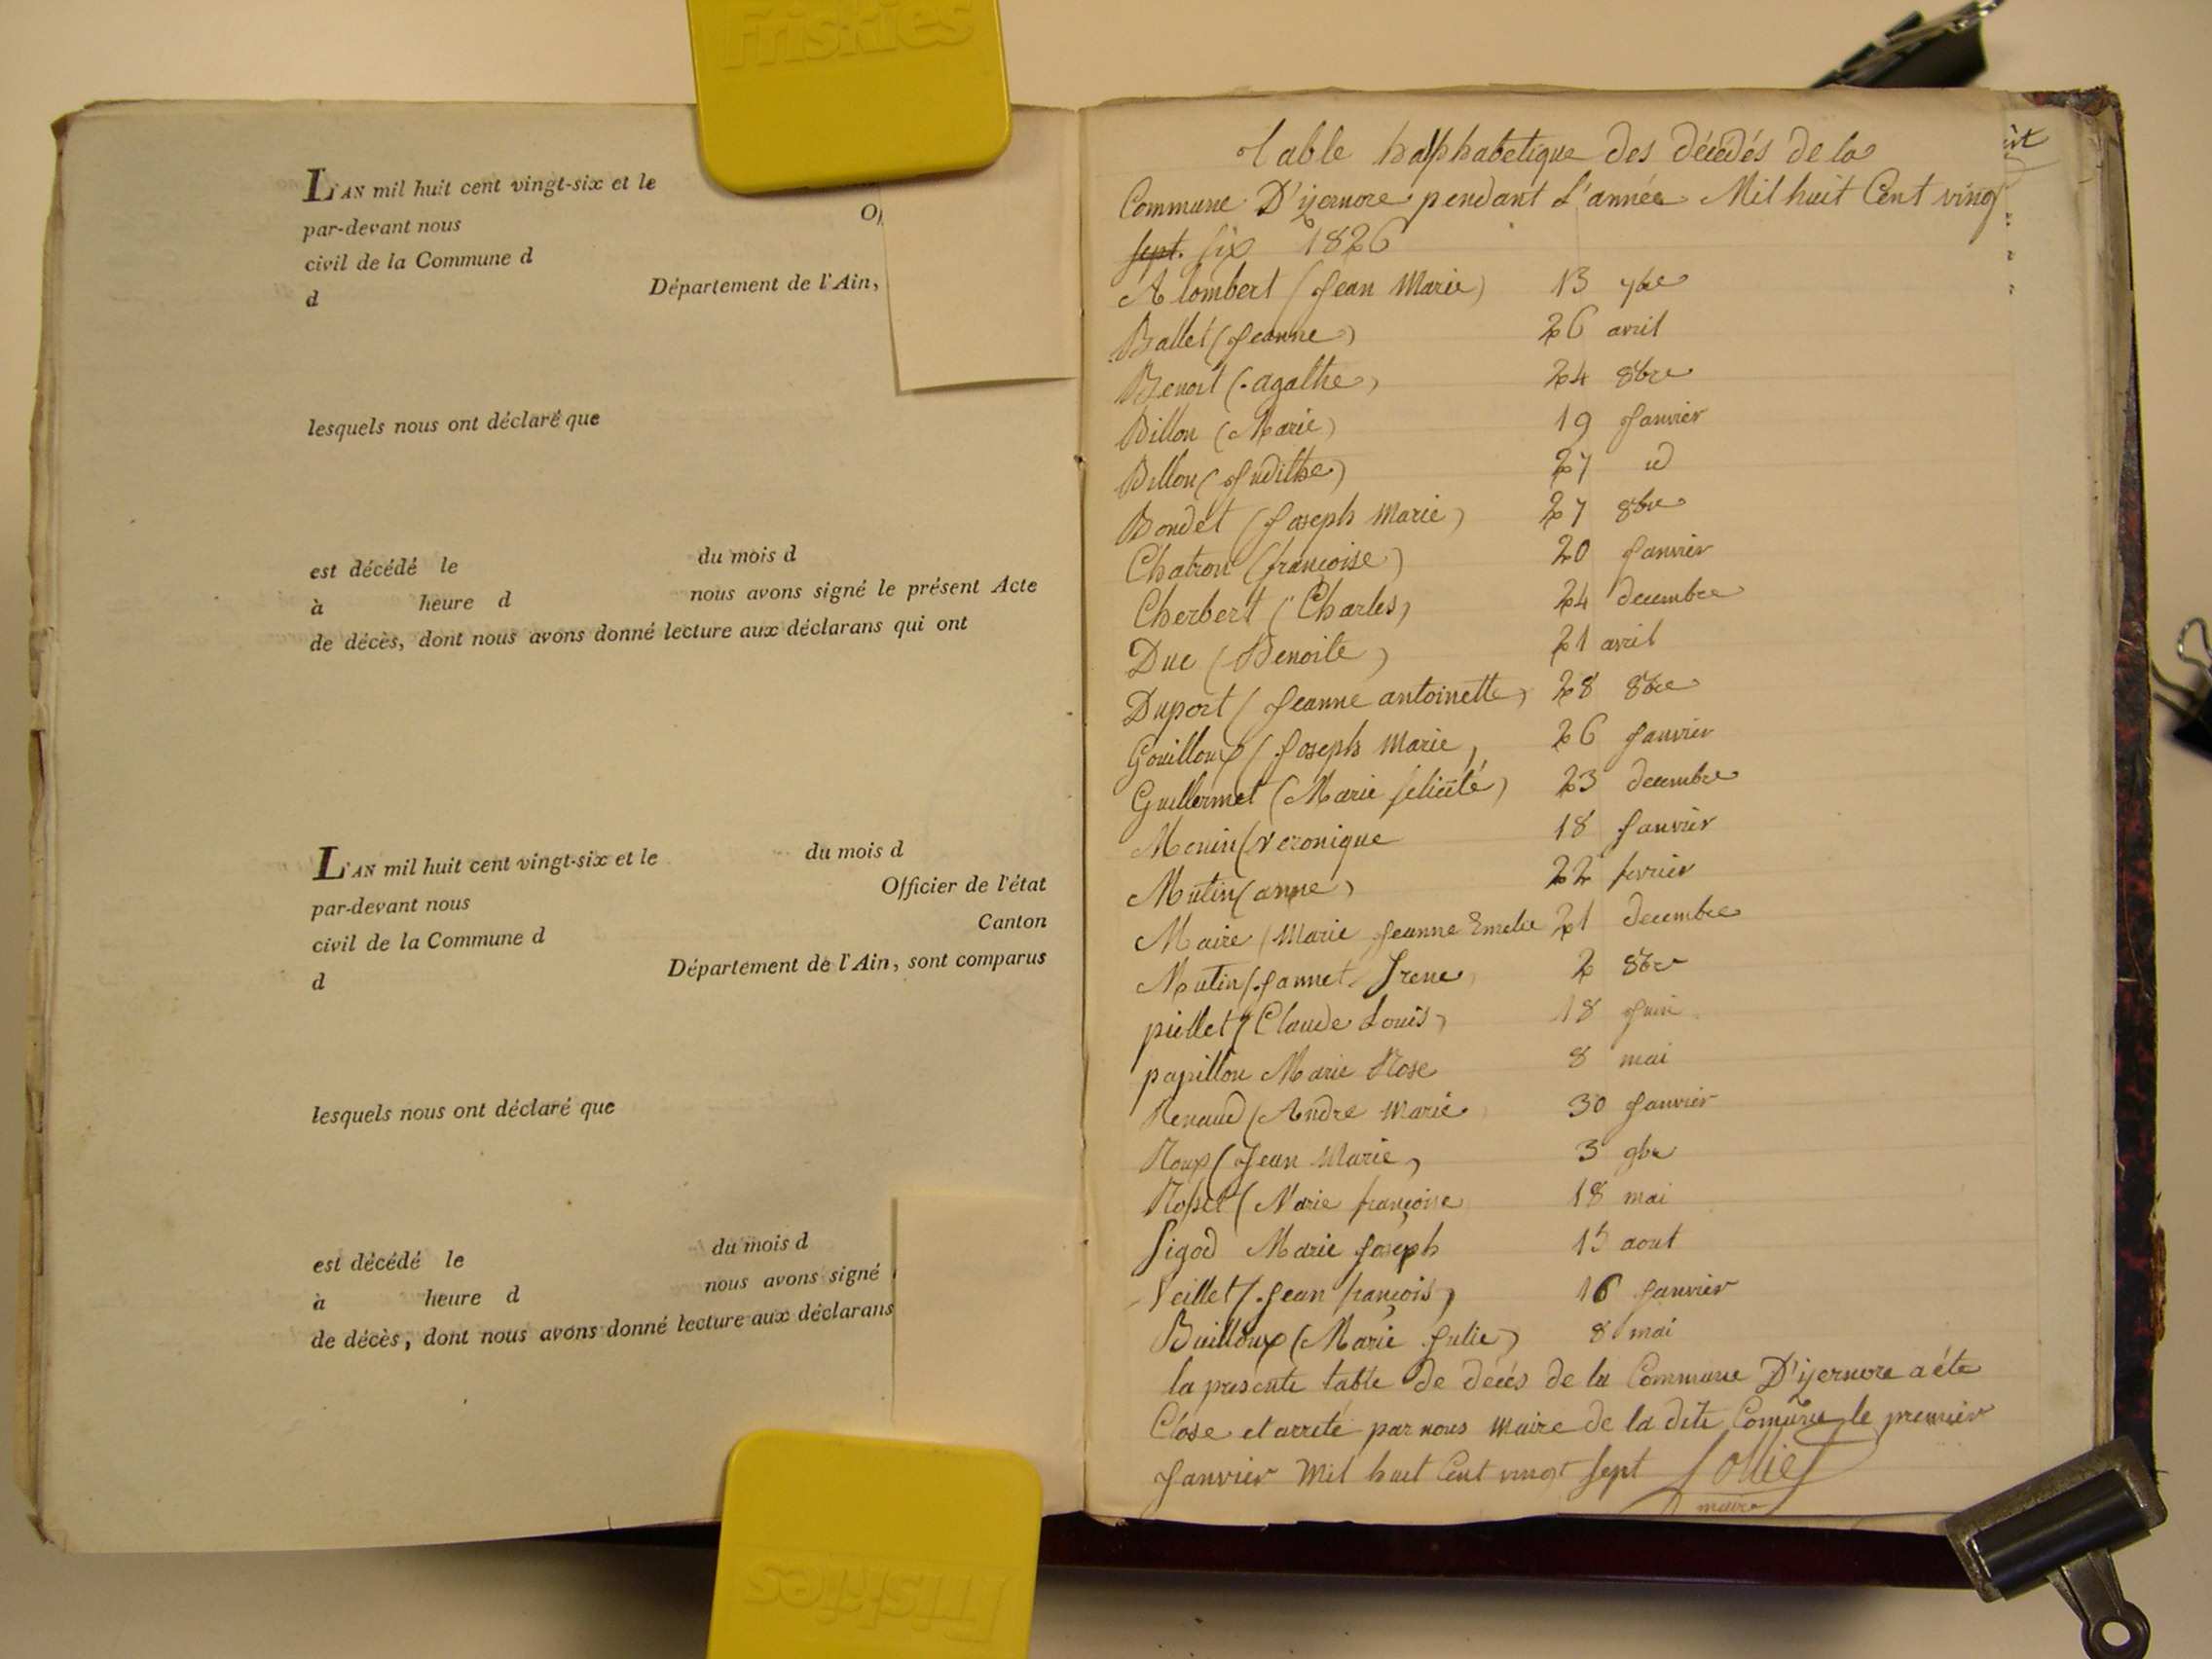 Friskies
L'AN mil huit cent vingt-six et le
par-devant nous
civil de la Commune d
d Département de l'Ain,
lesquels nous ont déclaré que
est décédé le du mois d
à heure d nous avons signé le présent Acte
de décès, dont nous avons donné lecture aux déclarans qui ont
L'AN mil huit cent vingt-six et le du mois d
par-devant nous Officier de l'état
civil de la Commune d Canton
d Département de l'Ain, sont comparus
lesquels nous ont déclaré que
est décédé le du mois d
à heure d nous avons signé
de décès, dont nous avons donné lecture aux déclarans
Friskies
Table halphabetique des décédés de la
Commune D'yzernore pendant L'année Mil huit Cent ving
sept. six 1826
Alombert (Jean Marie) 13 7bre
Ballet (Jeanne) 26 avril
Benoit (agathe) 24 8bre
Billon (Marie) 19 Janvier
Billon (Judithe) 27 id
Bondet (Joseph Marie) 27 8bre
Chatron (françoise) 20 Janvier
Cherbert (Charles) 24 decembre
Duc (Benoite) 21 avril
Duport (Jeanne antoinette) 28 8bre
Gouilloux (Joseph Marie) 26 Janvier
Guillermet (Marie félicité) 23 decembre
Monin (Veronique 18 Janvier
Mutin (anne) 22 fevrier
Maire (Marie Jeanne Emelie 21 decembre
Mutin (Jannet Irene) 2 8bre
piellet (Claude Louis) 18 Juin
papillon Marie Rose 8 mai
Renaud (Andre Marie 30 Janvier
Roux (Jean Marie) 3 9bre
Rosset (Marie françoise 18 mai
Sigod Marie Joseph 15 aout
Veillet (Jean françois) 16 Janvier
Builloux (Marie Julie) 8 mai
la presente table de decés de la Commune D'yzernore a éte
Close et arreté par nous maire de la dite Comune le premier
Janvier Mil huit Cent vingt sept
maire